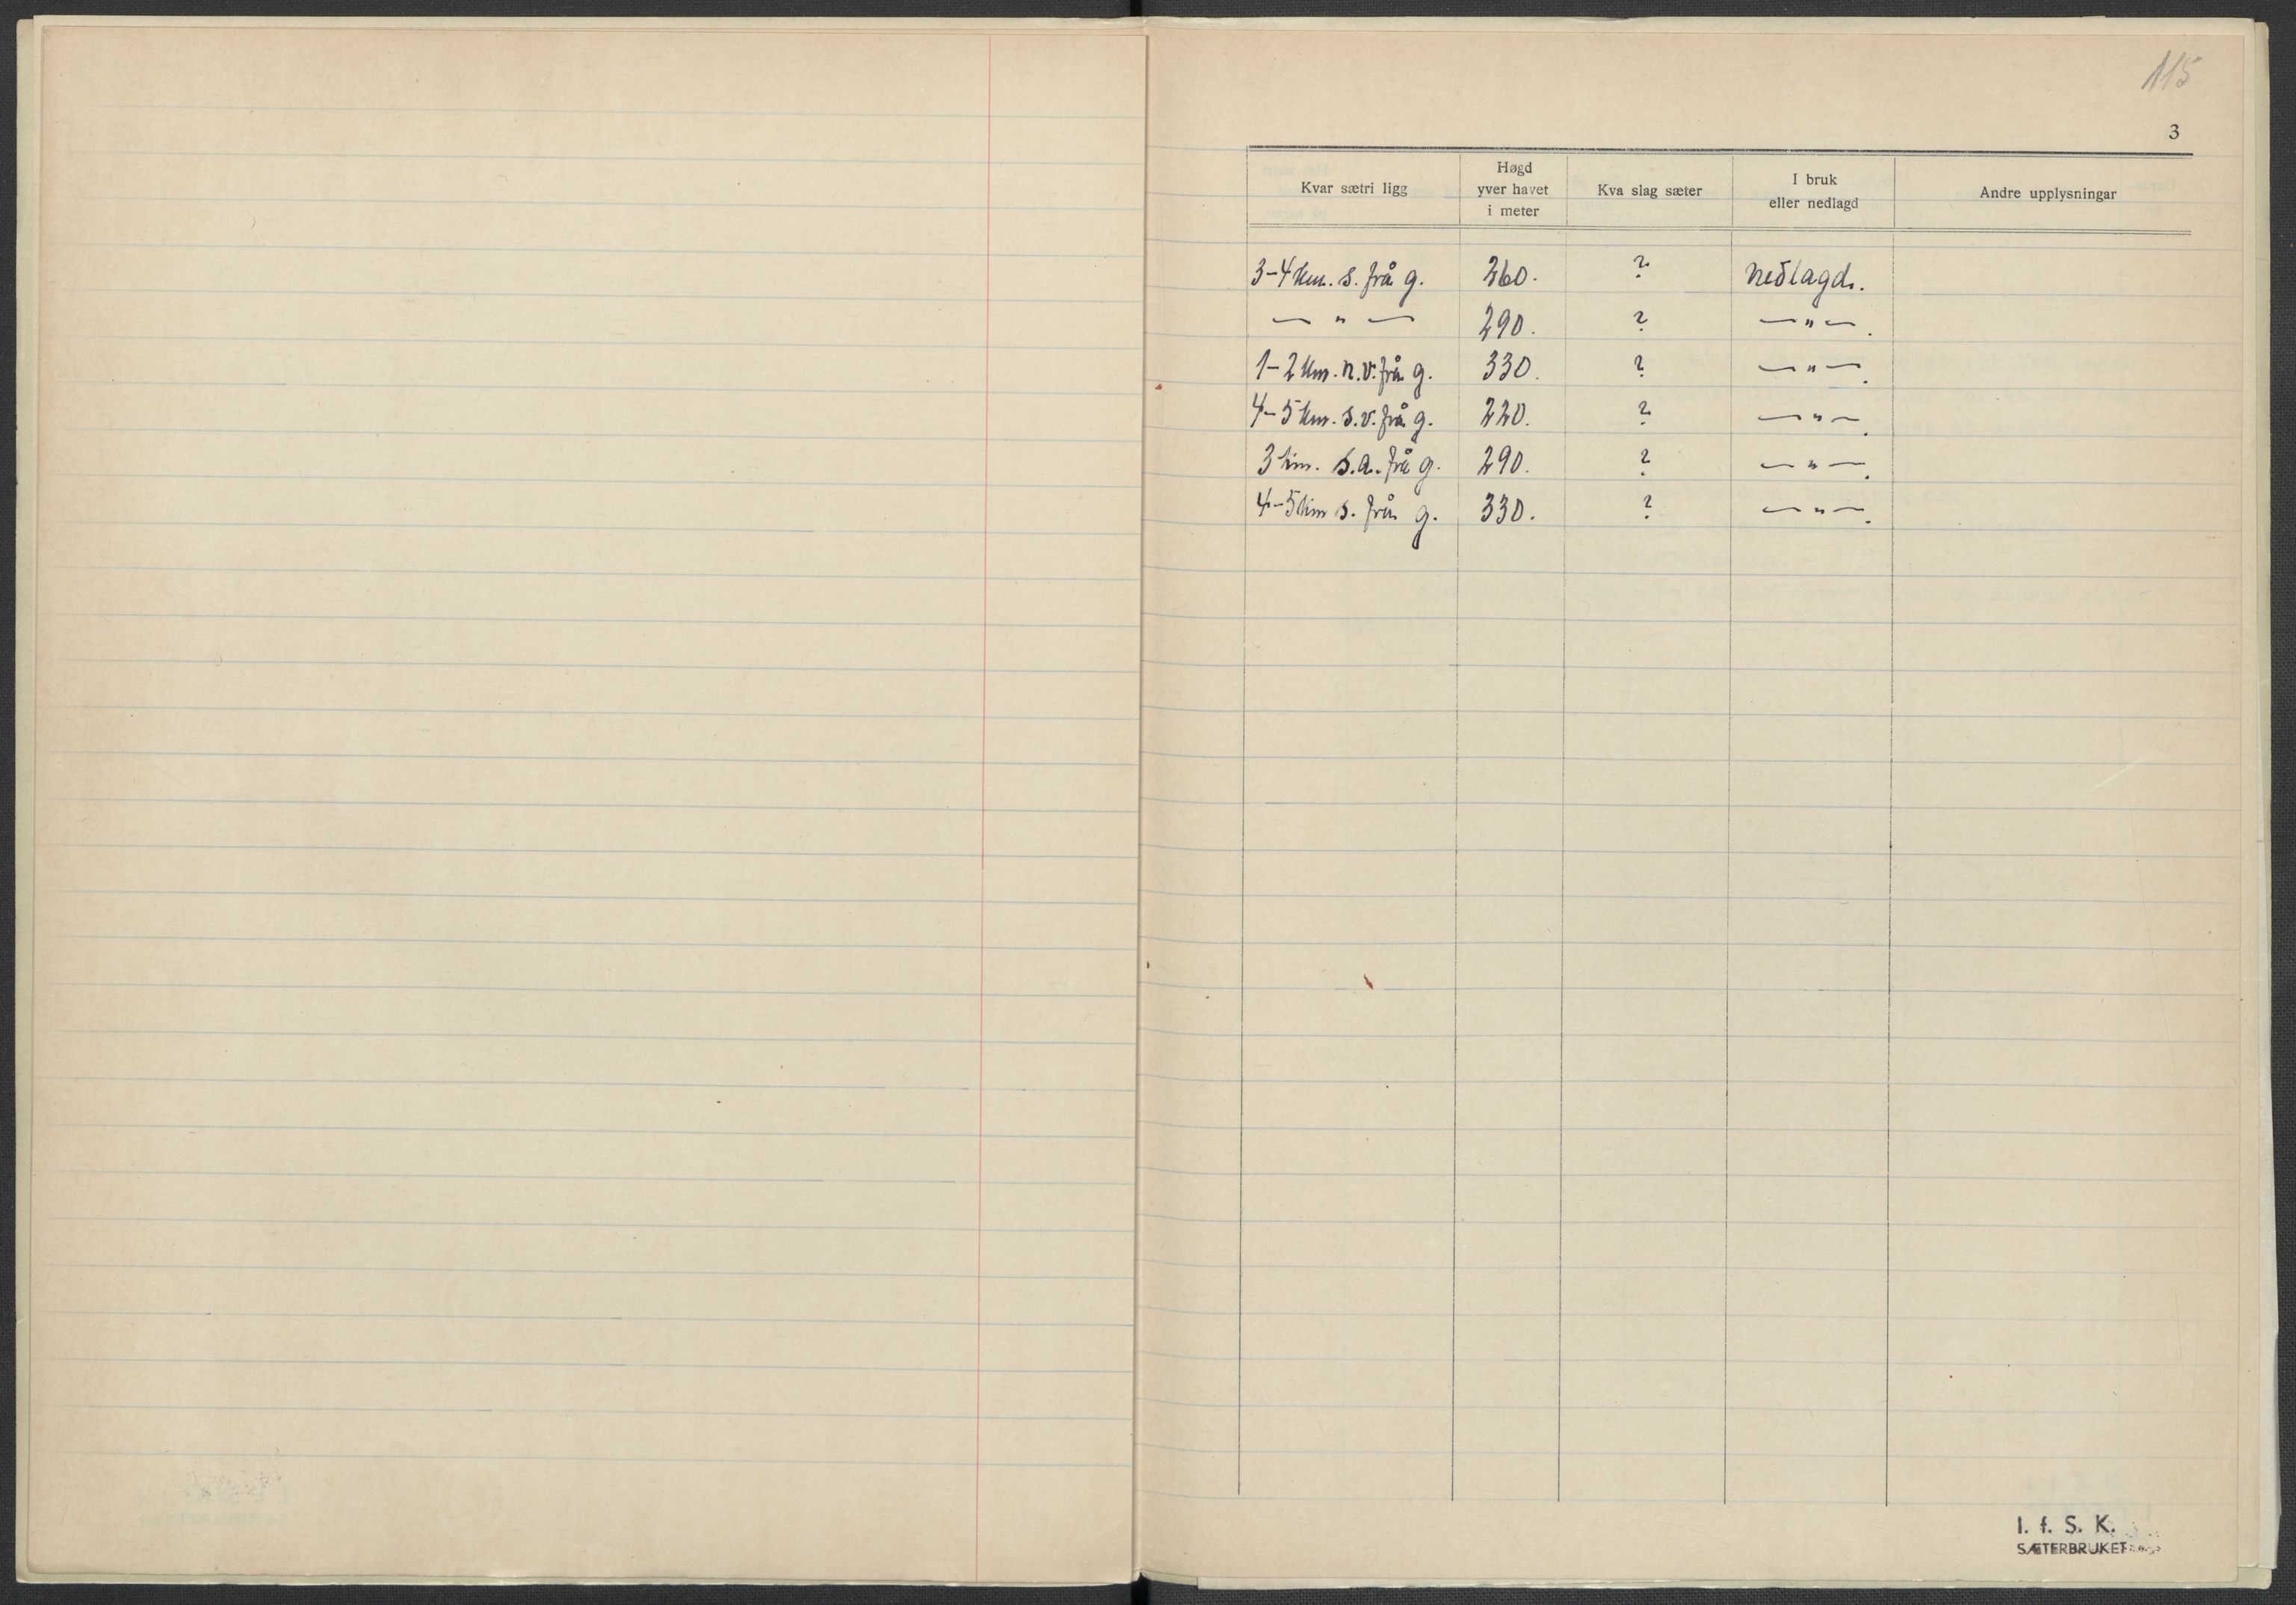 115
3
Kvar sætri ligg | Høgd yver havet i meter | Kva slag sæter | I bruk eller nedlagd | Andre upplysningar
3-4 km. s. frå g. | 260. | ? | Nedlagd.
— " — | 290. | ? | — " —.
1-2 km. n.v. frå g. | 330. | ? | — " —.
4-5 km. s.v. frå g. | 220. | ? | — " —.
3 km. s.a. frå g. | 290. | ? | — " —.
4-5 km s. frå g. | 330. | ? | — " —.
I. f. S. K.
SÆTERBRUKET